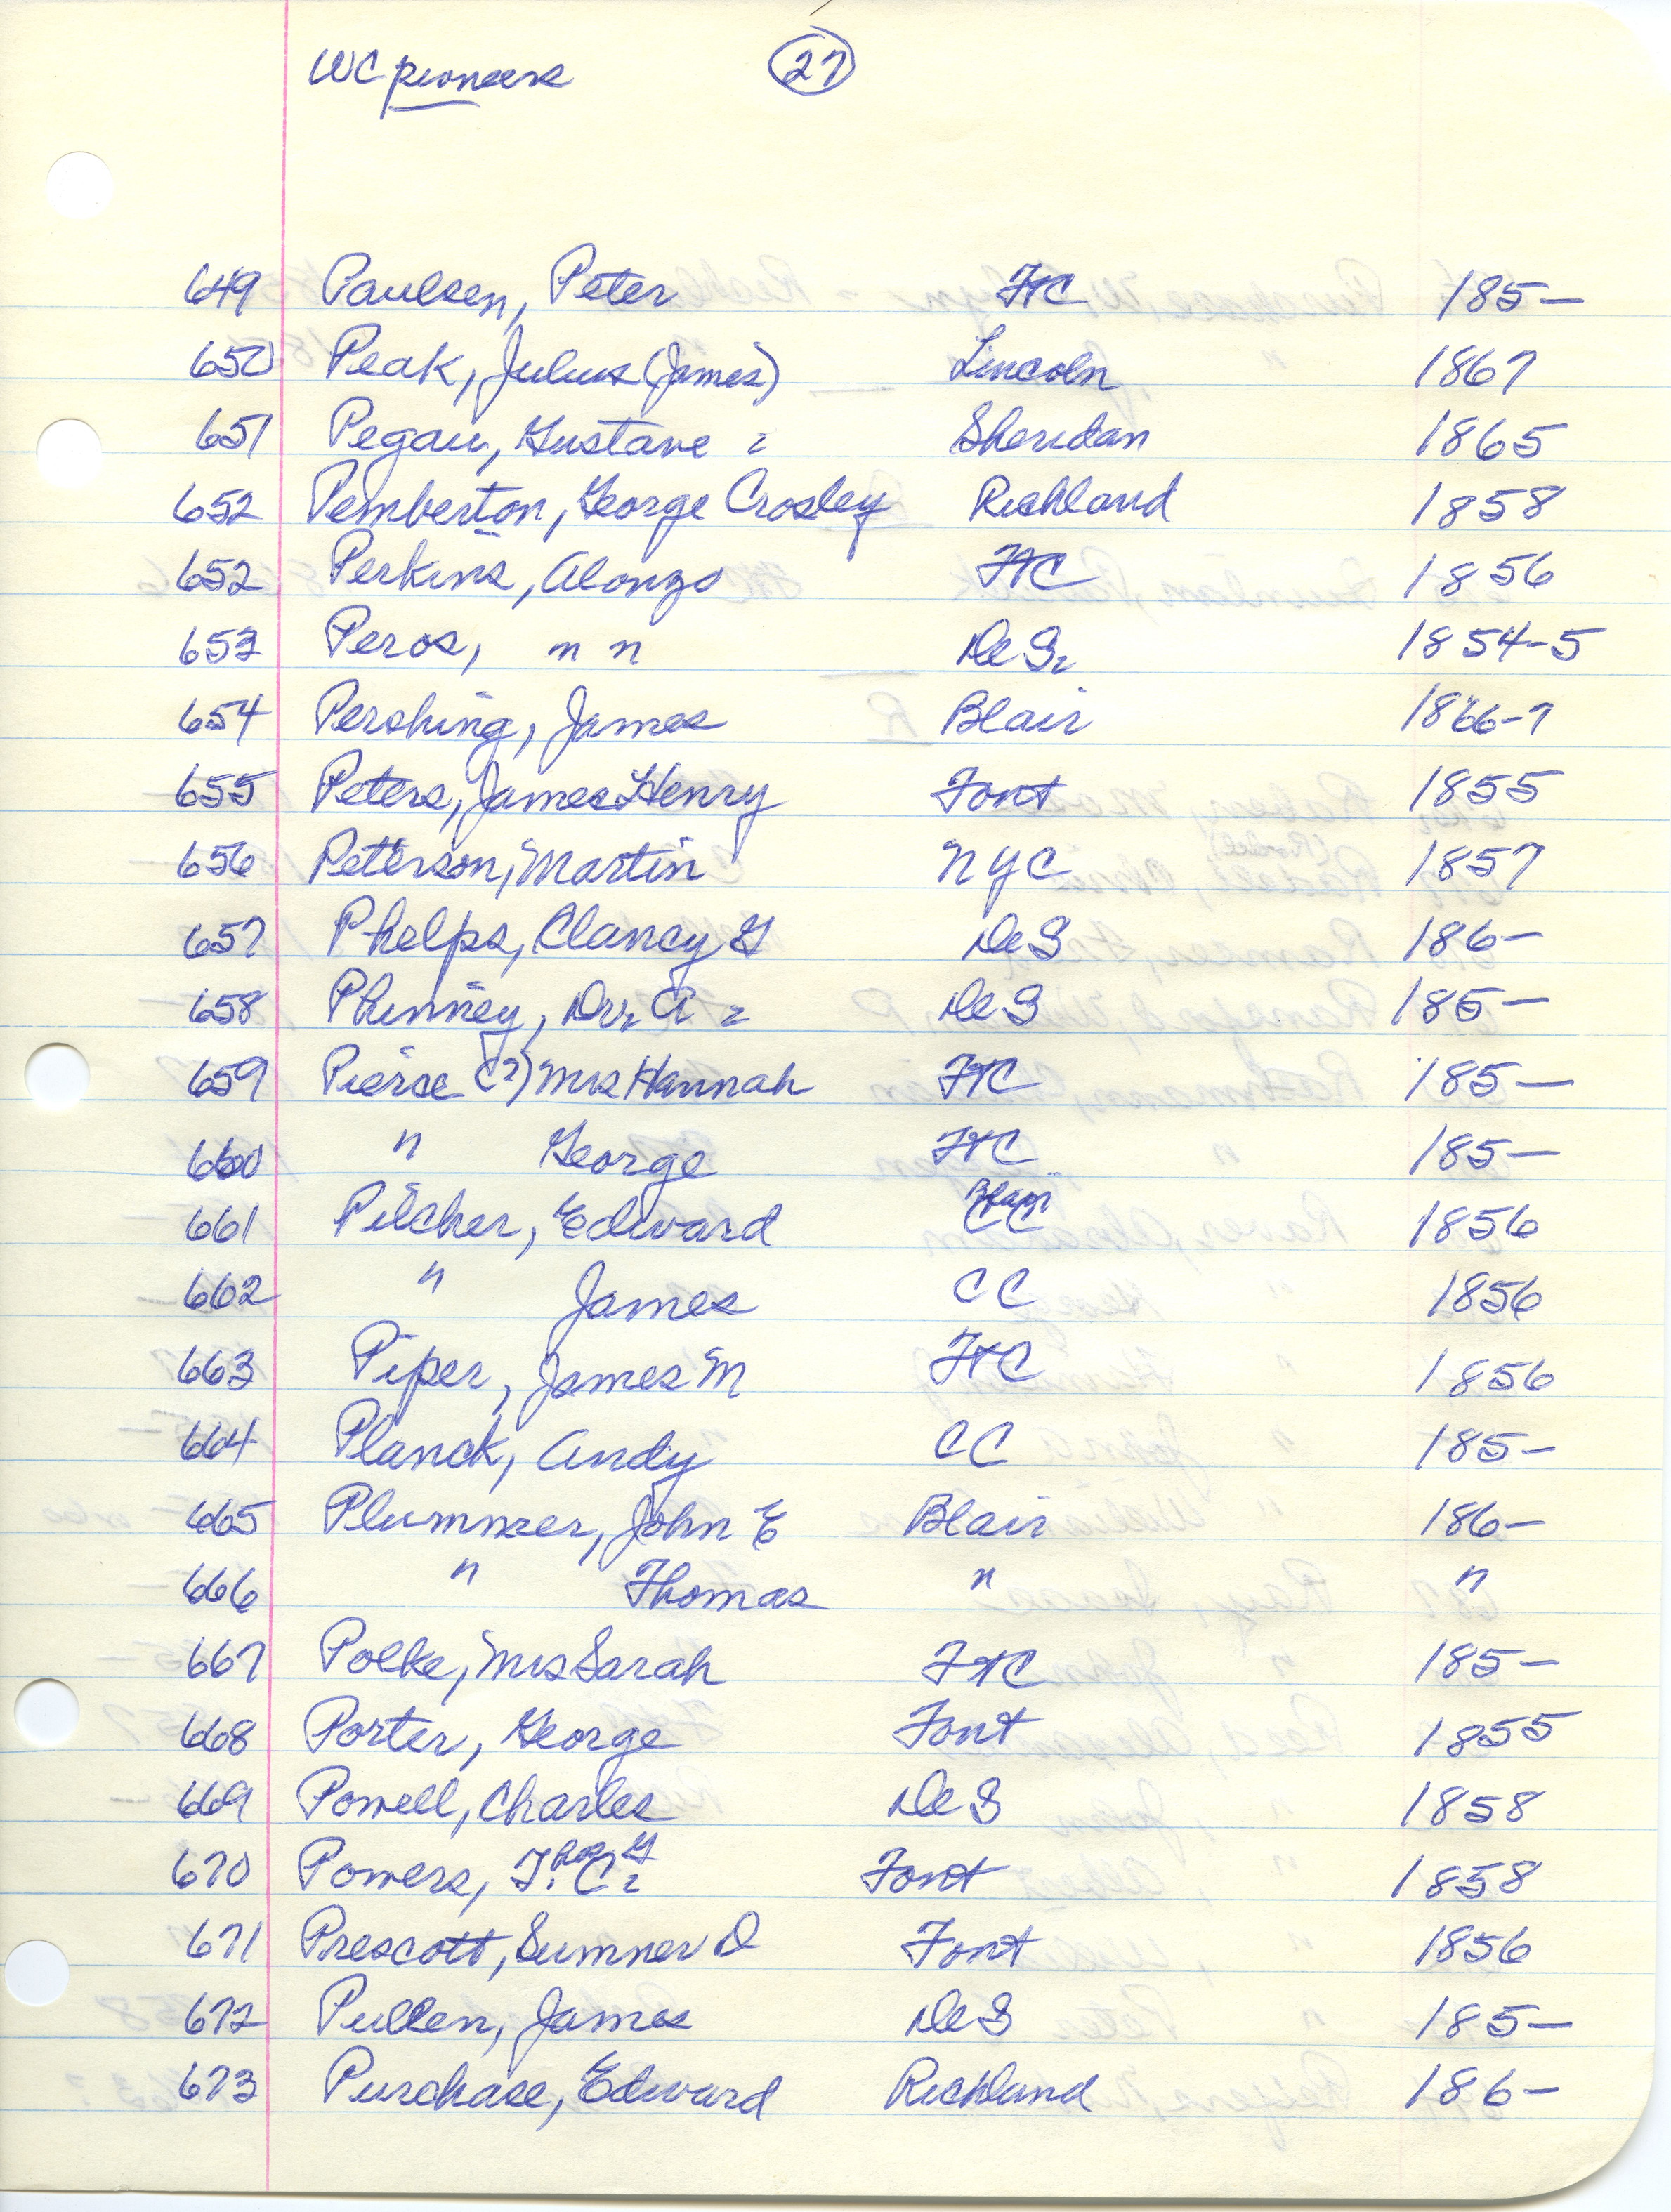 WC pioneers 27
649 Paulsen, Peter FtC 185—
650 Peak, Julius (James) Lincoln 1867
651 Pegau, Gustave Sheridan 1865
652 Pemberton, George Crosley Richland 1858
652 Perkins, Alonzo FtC 1856
653 Peros, n n DeS. 1854-5
654 Pershing, James Blair 1866-7
655 Peters, James Henry Font 1855
656 Peterson, Martin NYC 1857
657 Phelps, Clancy G DeS 186-
658 Phinney, Dr. A. DeS 185—
659 Pierse (?) Mrs Hannah FtC 185—
660 " George FtC 185—
661 Pilcher, Edward Blair CC 1856
662 " James CC 1856
663 Piper, James M FtC 1856
664 Planck, Andy CC 185-
665 Plummer, John E Blair 186-
666 " Thomas " "
667 Polke, Mrs Sarah FtC 185-
668 Porter, George Font 1855
669 Powell, Charles DeS 1858
670 Powers, Font 1858
671 Prescott, Sumner D Font 1856
672 Pullen, James DeS 185—
673 Purchase, Edward Richland 186-